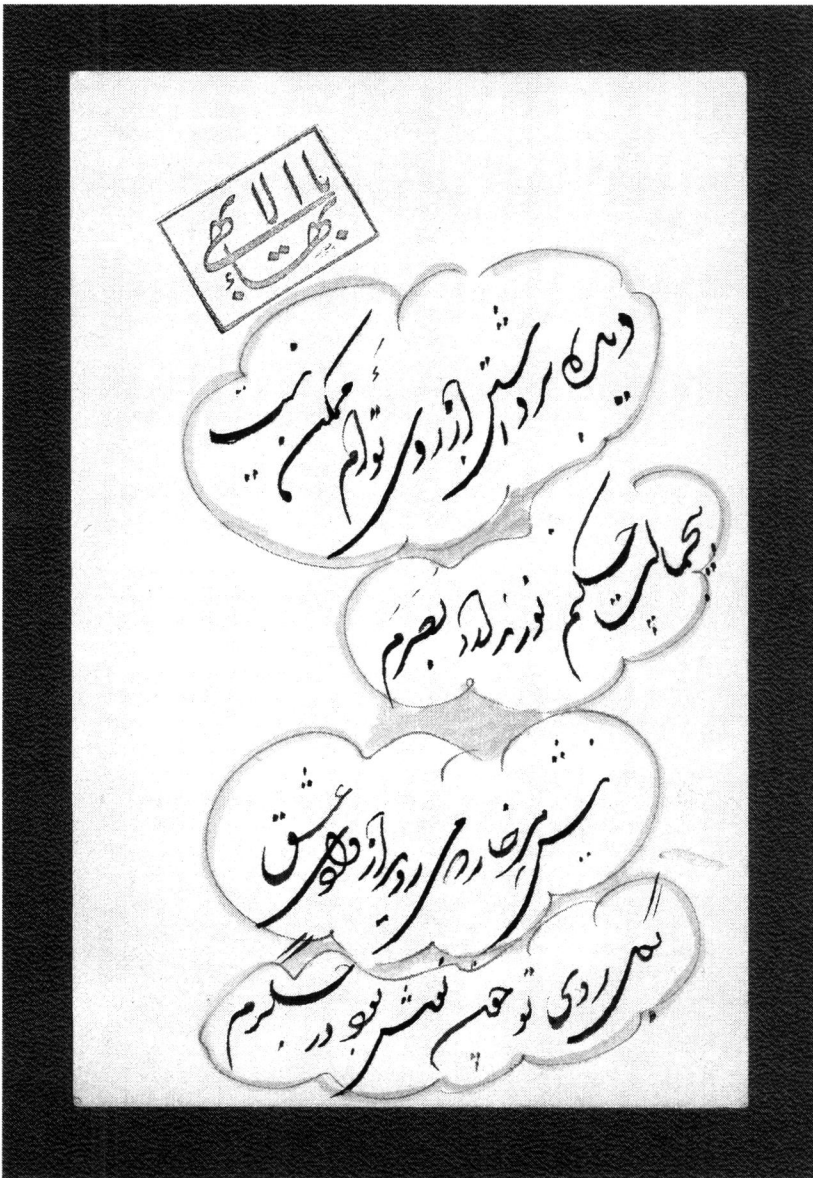 یا بهاء الابهی
دیده برداشتن از روی توأم ممکن نیست
بجمالت چکنم نور ندارد بصرم
نیش هر خار می روید از وادی عشق
روی تو چون بود در جگرم